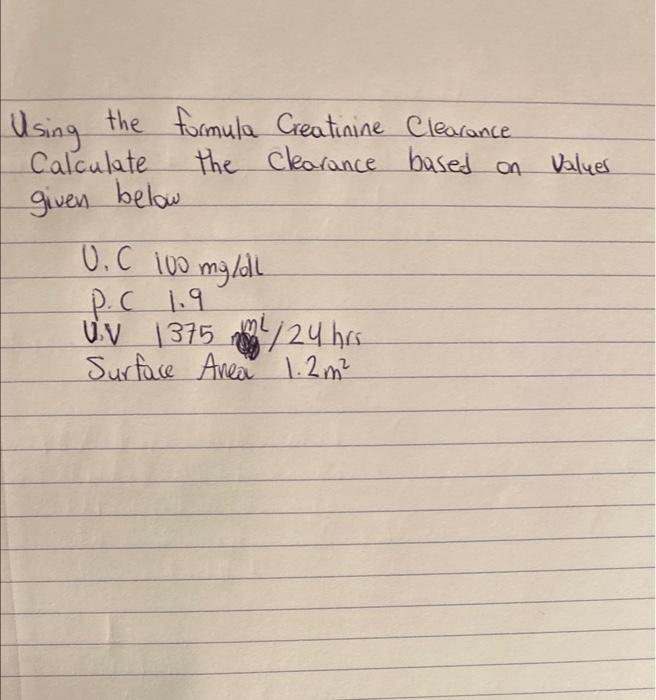 Using the formula Creatinine Clearance
Calculate the Clearance based on Values
given below
U.C 100 mg/dL
P.C 1.9
U.V 1375 mL/24 hrs
Surface Area 1.2m²